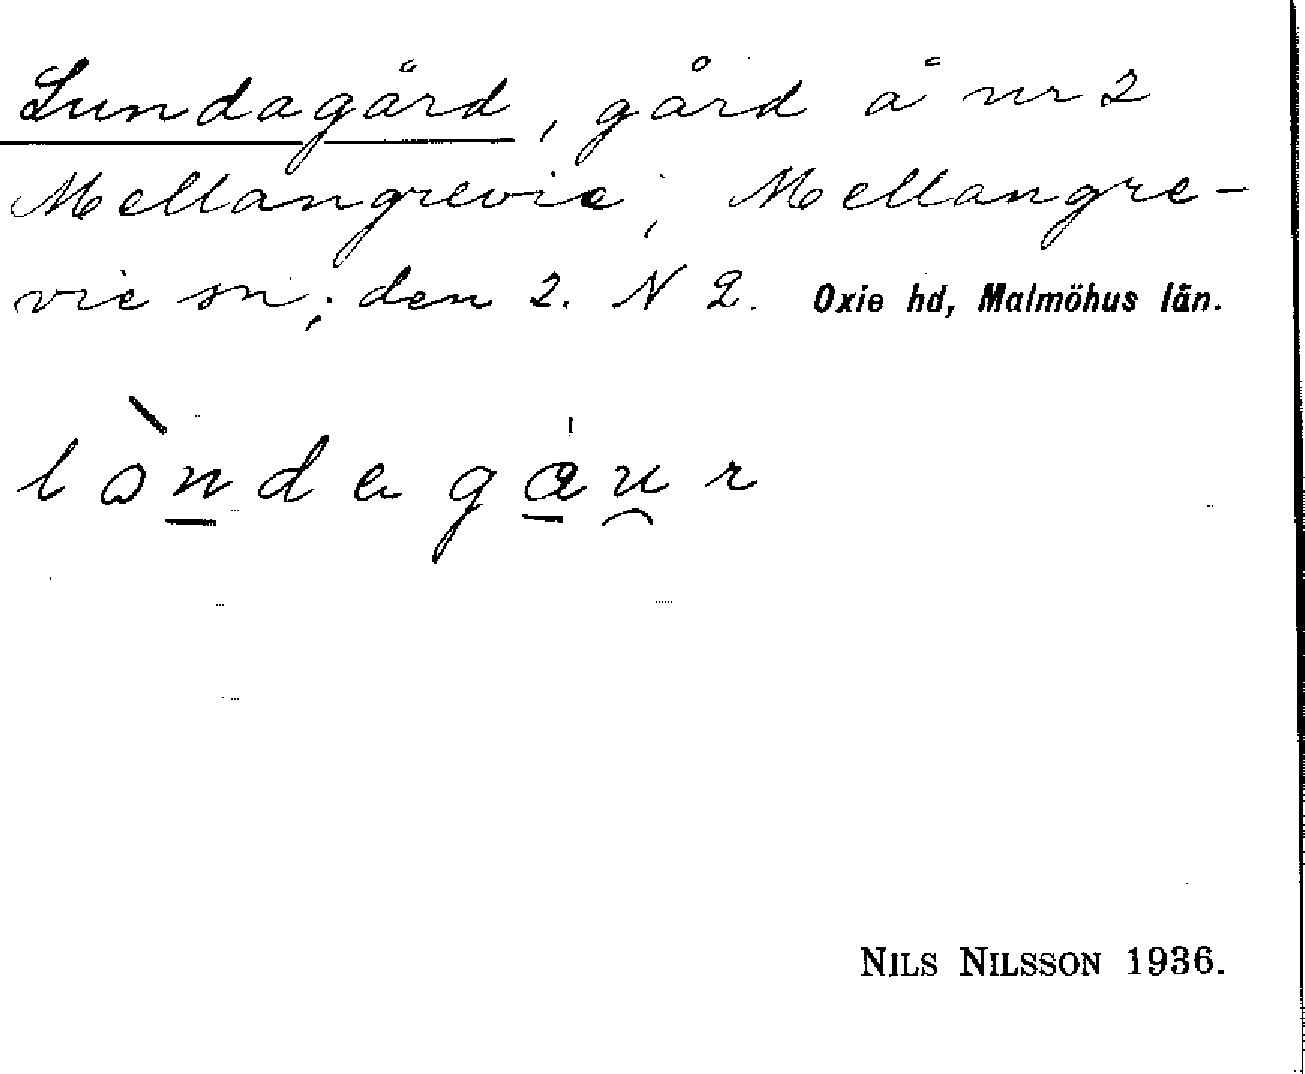 Lundagård, gård å nr 2
Mellangrevie, Mellangre-
vie sn; den 2. N 2. Oxie hd, Malmöhus län.
lòndagáur
NILS NILSSON 1936.